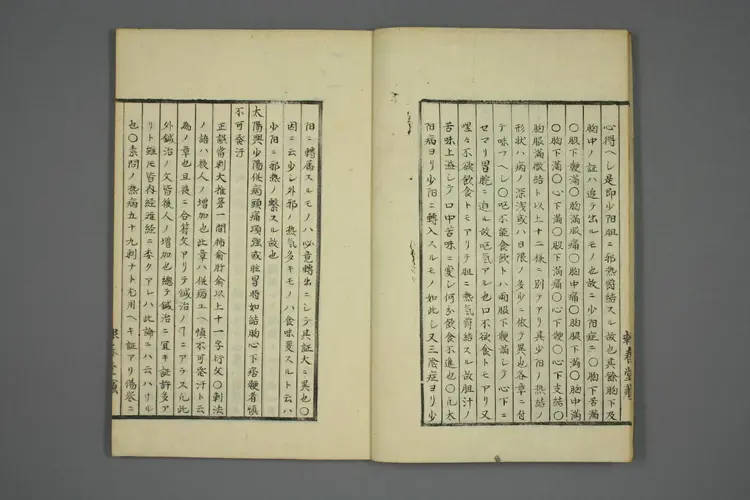 心得ヘシ是即少陽胆ニ邪熱欝結スル故也其餘胸下及
胸中ノ証ハ迫テ出ルモノ也故ニ少陽症ニ〇胸下苦満
〇胸下鞕満〇胸満脹痛〇胸中痛〇胸脹下満〇胸中満
〇胸下満〇心下満〇脹下満痛〇心下鞕〇心下支結〇
胸脹満微結ト以上十二様ニ別テアリ其少陽ノ熱結ノ
形状ハ病ノ深浅或ハ日限ノ多少ニ依テ異也各章ニ付
テ味フヘシ〇吃不能食飲トハ両脹下鞕満シテ心下ニ
セマリ胃脘ニ迫ル故吃気アル也口不欲食トモアリ又
嘿々不欲飲食トモアリテ胆ニ熱気欝結スル故胆汁ノ
苦味上溢シテ口中苦味ニ変シ何分飲食不進也〇凡太
陽病ヨリ少陽ニ轉入スルモノ如此シ又三陰症ヨリ少
陽ニ轉属スルモノハ必竟轉出ニシテ其証大ニ異也〇
因ニ云少シ外邪ノ熱気多キモノハ食味変スルト云ハ
少陽ニ邪熱ノ繋スル故也
太陽與少陽併病頭痛項強或眩冒時如結胸心下痞鞕者慎
不可発汗
正誤當刺大椎第一間肺俞肝俞以上十一字衍文〇刺法
ノ語ハ後人ノ増加也此章ハ併病ユヘ慎不可発汗ト云
為ノ章也且後ニ合第文アリテ鍼治ノ丁ニアラス凡此
外鍼治ノ文皆後人ノ増加也總テ鍼治ニ宜キ証許多ア
リト雖𪜈皆内経難経ニ委クアレハ此論ニハ云ハサル
也〇素問ノ熱病五十九刺ナト尤用ヘキ証アリ傷寒ニ